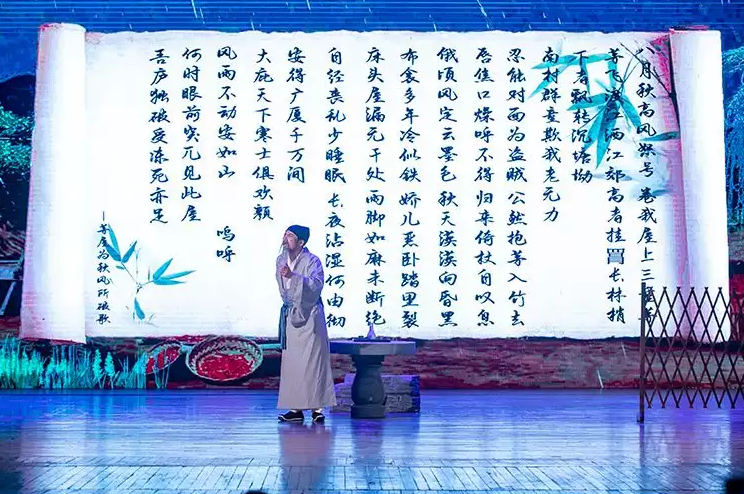 八月秋高风怒号 卷我屋上三重茅
茅飞渡江洒江郊高者挂罥长林梢
下者飘转沉塘坳
南村群童欺我老无力
忍能对面为盗贼公然抱茅入竹去
唇焦口燥呼不得归来倚杖自叹息
俄顷风定云墨色秋天漠漠向昏黑
布衾多年冷似铁娇儿恶卧踏里裂
床头屋漏无干处雨脚如麻未断绝
自经丧乱少睡眠长夜沾湿何由彻
安得广厦千万间
大庇天下寒士俱欢颜
风雨不动安如山 呜呼
何时眼前突兀见此屋
吾庐独破受冻死亦足
—茅屋为秋风所破歌